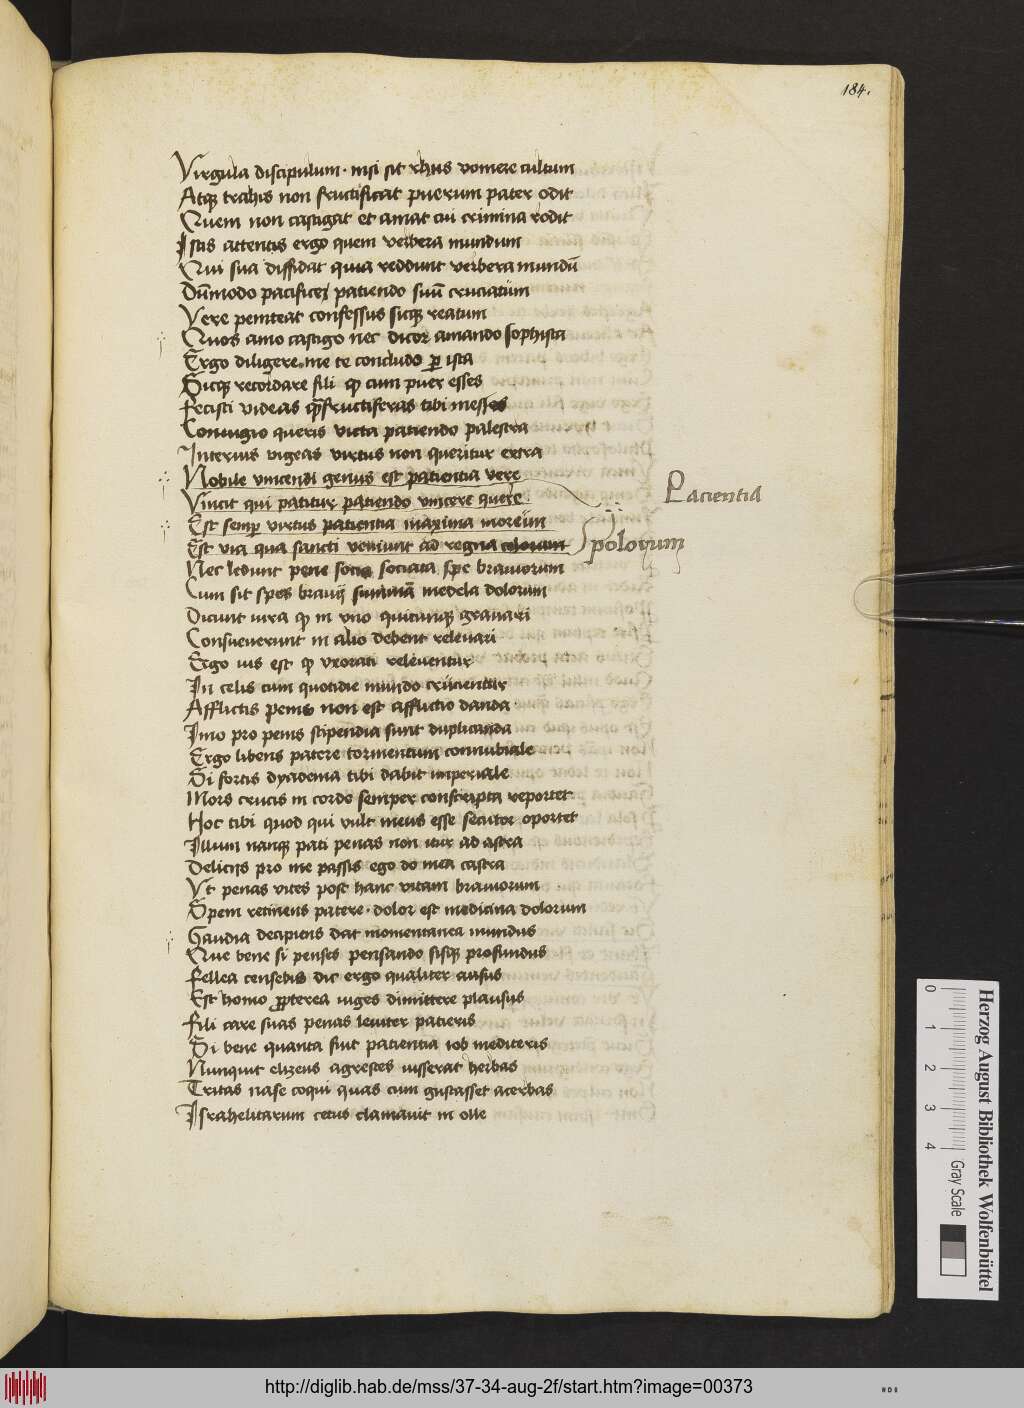 184.
Virgula discipulum · nisi sit rhus vomere cultum
Atq; trahis non fructificat puerum pater odit
Quem non castigat et amat cui crimina rodit
Istis attentis ergo quem verbera mundum
Qui sua diffidat quia reddunt verbera mundū
Dūmodo pacificei patiendo suū cruciatum
Vere peniteat confessus sicq; reatum
Quos amo castigo nec dicor amando sophista
Ergo diligere me te concludo ꝑ ista
Sicq; recordare fili ꝙ cum puer esses
Fecisti videas fructiferas tibi messes
Coniugio queris victa patiendo palestra
Interius vigeas virtus non queritur extra
Nobile vincendi genus est patientia vere
Pacientia
Vincit qui patitur patiendo vincere quere
Est semꝑ virtus patientia maxima moreum
Est via qua sancti veniunt ad regna celorum
polorum
Nec ledunt pene socie sociata spe brauiorum
Cum sit spes brauij summa medela dolorum
Dicunt iura ꝙ in vno quicunq; grauari
Consueuerunt in alio debent releuari
Ergo ius est ꝙ vxorati releuentur
In celis cum quotidie mundo crucientur
Afflictis penis non est afflictio danda
Imo pro penis stipendia sunt duplicanda
Ergo libens patere tormentum connubiale
Si fortis dyadema tibi dabit imperiale
Mors crucis in corde semper conscripta reportet
Hoc tibi quod qui vult meus esse secutor oportet
Illum nanq; pati penas non itur ad astra
Delicijs pro me passis ego do mea castra
Vt penas vites post hanc vitam brauiorum
Spem retinens patere · dolor est medicina dolorum
Gaudia decipiens dat momentanea mundus
Que bene si penses pensando sisq; profundus
Fellea censebis dic ergo qualiter ausus
Est homo ꝓpterea iuges dimittere plausus
Fili care suas penas leuiter patieris
Si bene quanta fuit patientia iob mediteris
Nunquit elizeus agrestes iusserat herbas
Tritas nase coqui quas cum gustasset acerbas
Israhelitarum cetus clamauit in olle
Herzog August Bibliothek Wolfenbüttel
0 1 2 3 4
Gray Scale
http://diglib.hab.de/mss/37-34-aug-2f/start.htm?image=00373